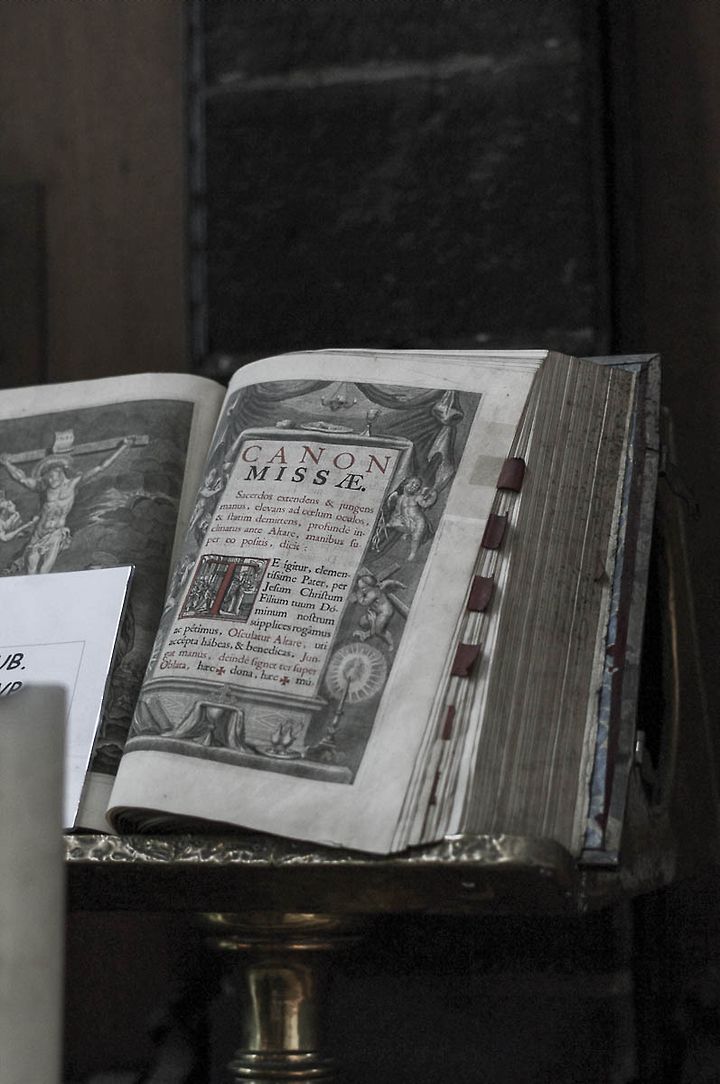 CANON
MISSÆ.
Sacerdos extendens & jungens
manus, elevans ad cœlum oculos,
& statim demittens, profundè in-
clinatus ante Altare, manibus su-
per eo positis, dicit :
TE igitur, clemen-
tissime Pater, per
Jesum Christum
Filium tuum Dó-
minum nostrum
supplices rogámus
ac pétimus, Osculatur Altare, uti
accépta hábeas, & benedícas, Jun-
git manus, deindè signat ter super
Oblata, hæc ✠ dona, hæc ✠ mú-
UB.